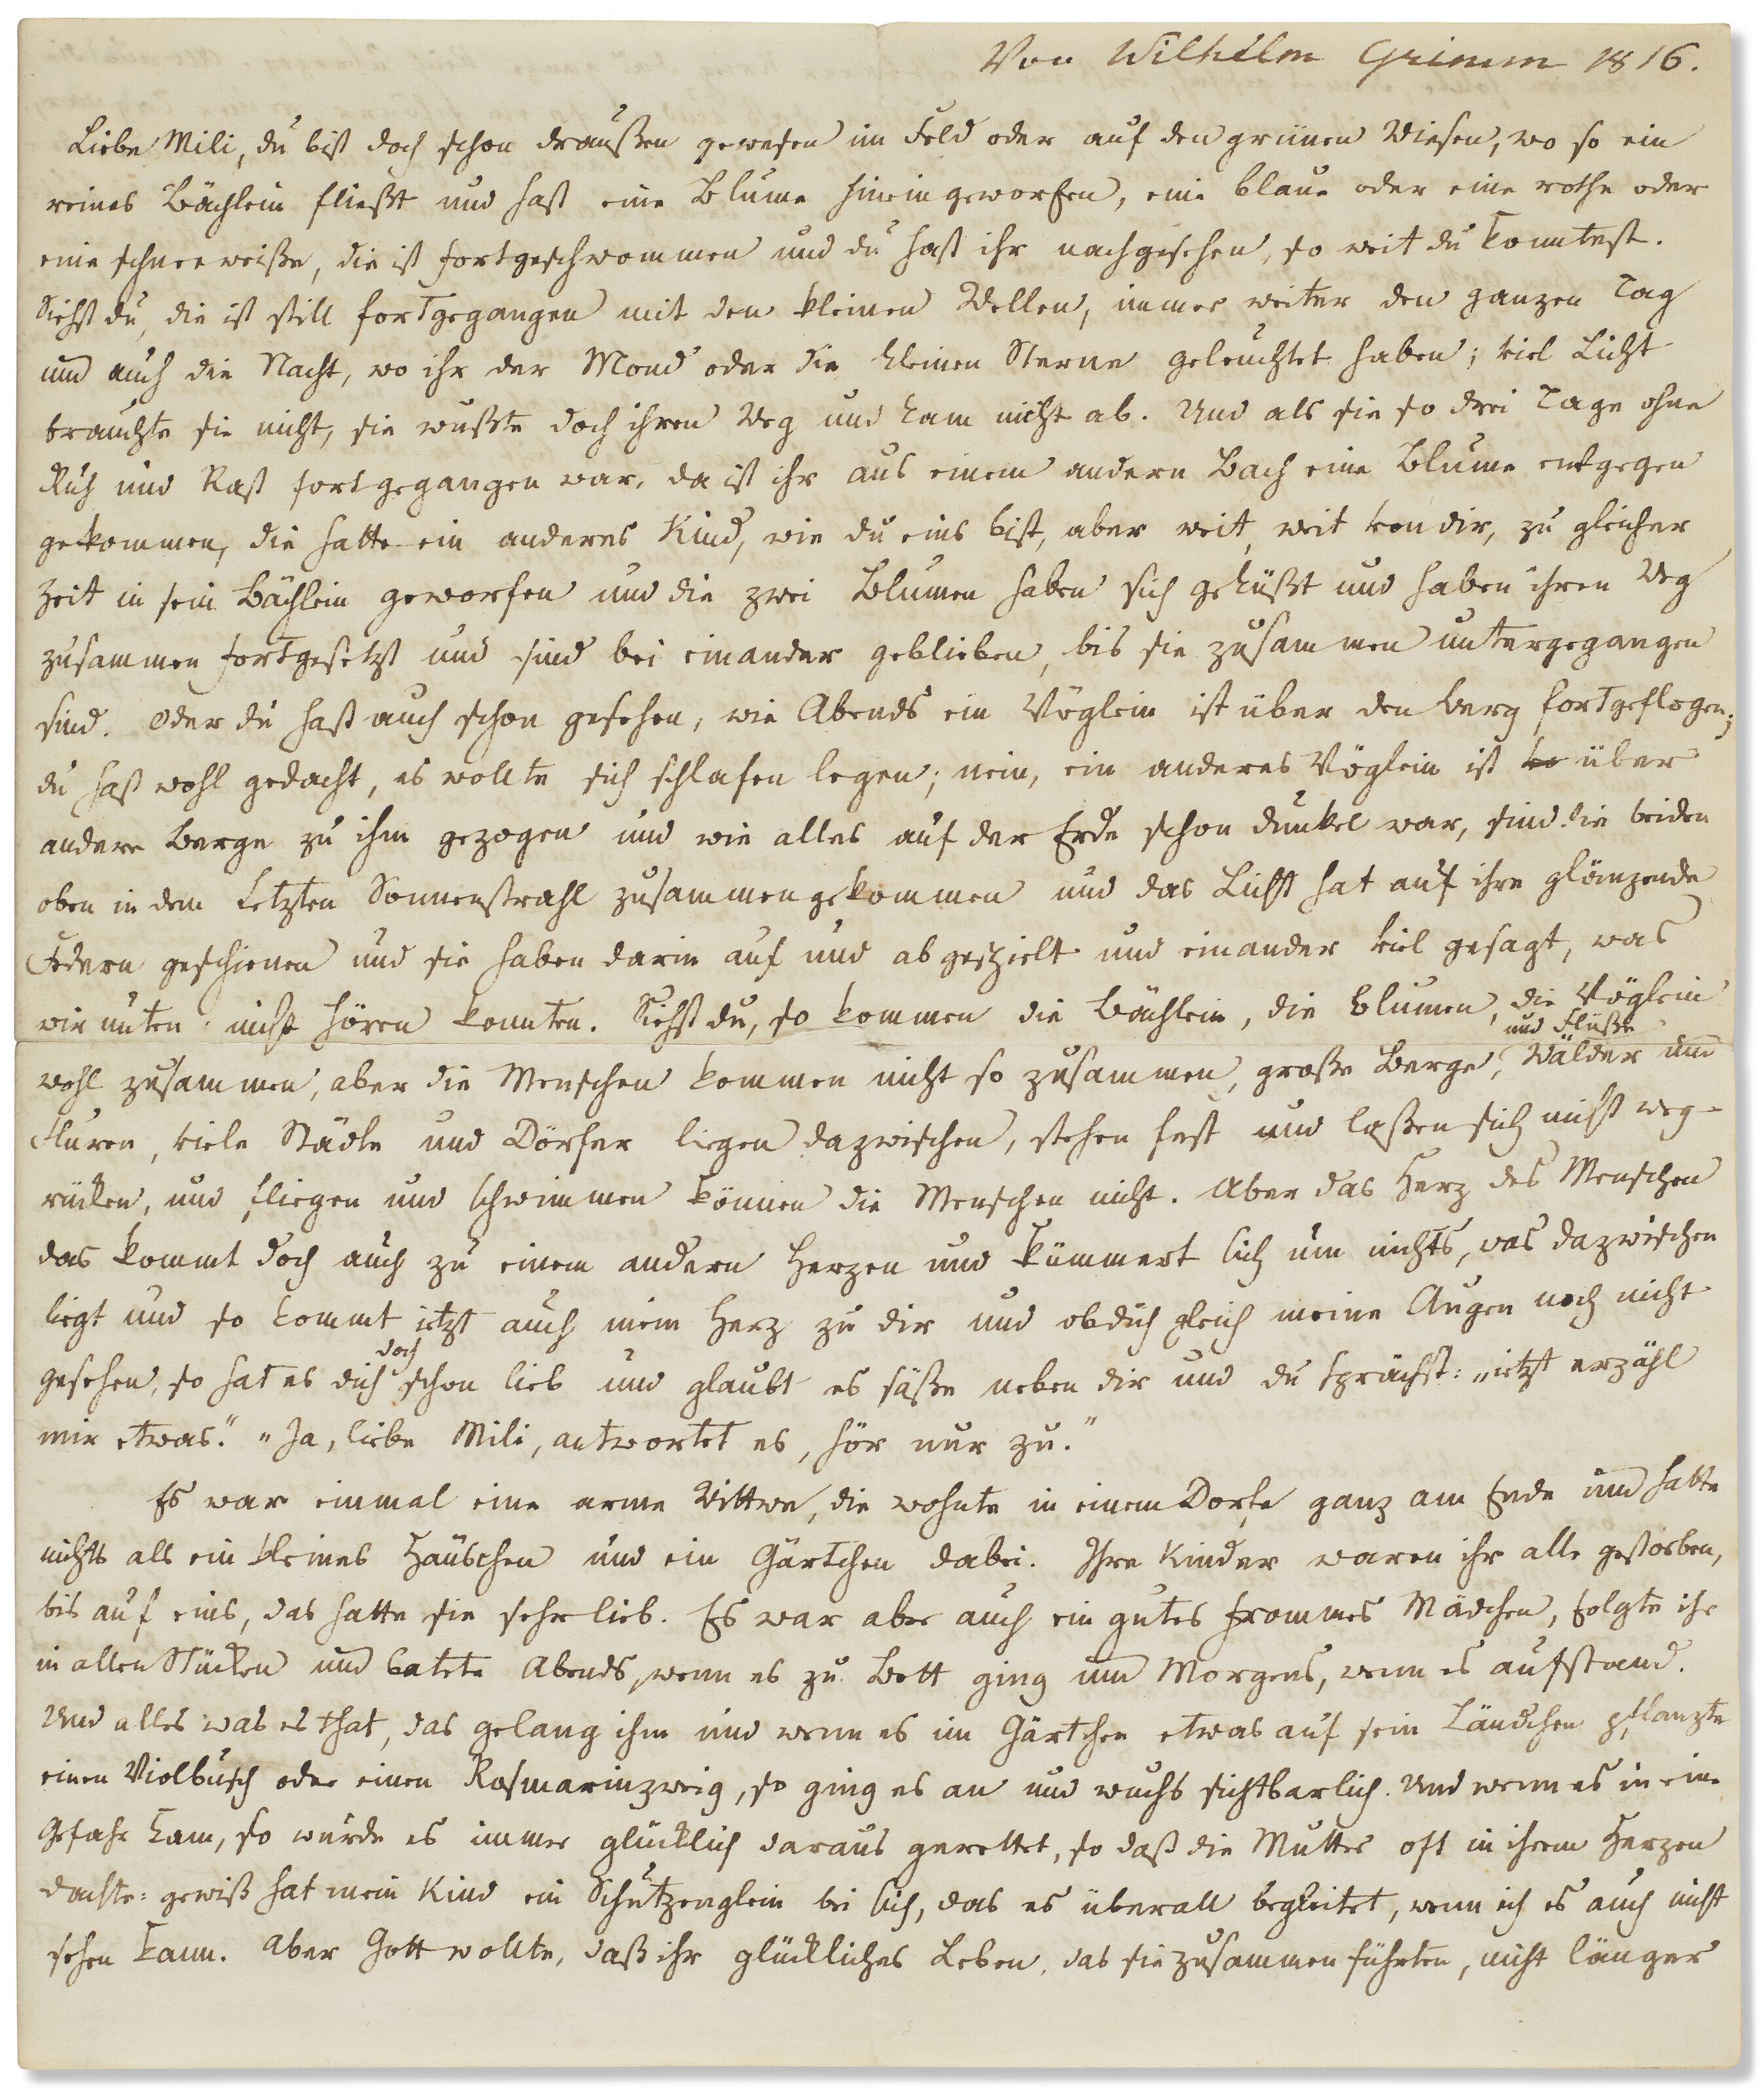 Von Wilhelm Grimm 1816.
Liebe Mili, du bist doch schon draußen gewesen im Feld oder auf den grünen Wiesen, wo so ein
reines Bächlein fließt und hast eine Blume hineingeworfen, eine blaue oder eine rothe oder
eine schneeweiße, die ist fortgeschwommen und du hast ihr nachgesehen, so weit du konntest.
Siehst du, die ist still fortgegangen mit den kleinen Wellen, immer weiter den ganzen Tag
und auch die Nacht, wo ihr der Mond oder die kleinen Sterne geleuchtet haben; viel Licht
brauchte sie nicht, sie wußte doch ihren Weg und kam nicht ab. Und als sie so drei Tage ohne
Ruh und Rast fortgegangen war, da ist ihr aus einem andern Bach eine Blume entgegen
gekommen, die hatte ein anderes Kind, wie du eins bist, aber weit, weit von dir, zu gleicher
Zeit in sein Bächlein geworfen und die zwei Blumen haben sich geküßt und haben ihren Weg
zusammen fortgesetzt und sind bei einander geblieben, bis sie zusammen untergegangen
sind. Oder du hast auch schon gesehen, wie Abends ein Vöglein ist über den Berg fortgeflogen;
du hast wohl gedacht, es wollte sich schlafen legen; nein, ein anderes Vöglein ist über
andere Berge zu ihm gezogen und wie alles auf der Erde schon dunkel war, sind die beiden
oben in dem letzten Sonnenstrahl zusammengekommen und das Licht hat auf ihre glänzende
Federn geschienen und sie haben darin auf und ab gespielt und einander viel gesagt, was
wir unten nicht hören konnten. Siehst du, so kommen die Bächlein, die Blumen, die Vöglein
und Flüße
wohl zusammen, aber die Menschen kommen nicht so zusammen, große Berge, Wälder und
Fluren, viele Städte und Dörfer liegen dazwischen, stehen fest und laßen sich nicht weg-
rücken, und fliegen und schwimmen können die Menschen nicht. Aber das Herz des Menschen
das kommt doch auch zu einem andern Herzen und kümmert sich um nichts, was dazwischen
liegt und so kommt jetzt auch mein Herz zu dir und ob dich gleich meine Augen noch nicht
doch
gesehen, so hat es dich schon lieb und glaubt es säße neben dir und du sprächst: „jetzt erzähl
mir etwas.“ „Ja, liebe Mili, antwortet es, hör nur zu.“
Es war einmal eine arme Wittwe, die wohnte in einem Dorfe ganz am Ende und hatte
nichts als ein kleines Häuschen und ein Gärtchen dabei. Ihre Kinder waren ihr alle gestorben,
bis auf eins, das hatte sie sehr lieb. Es war aber auch ein gutes frommes Mädchen, folgte ihr
in allen Stücken und betete Abends, wenn es zu Bett ging und Morgens, wenn es aufstand.
Und alles was es that, das gelang ihm und wenn es im Gärtchen etwas auf sein Ländchen pflanzte
einen Violbusch oder einen Rosmarinzweig, so ging es an und wuchs sichtbarlich. Und wenn es in eine
Gefahr kam, so wurde es immer glücklich daraus gerettet, so daß die Mutter oft in ihrem Herzen
dachte: gewiß hat mein Kind ein Schutzenglein bei sich, das es überall begleitet, wenn ich es auch nicht
sehen kann. Aber Gott wollte, daß ihr glückliches Leben, das sie zusammen führten, nicht länger